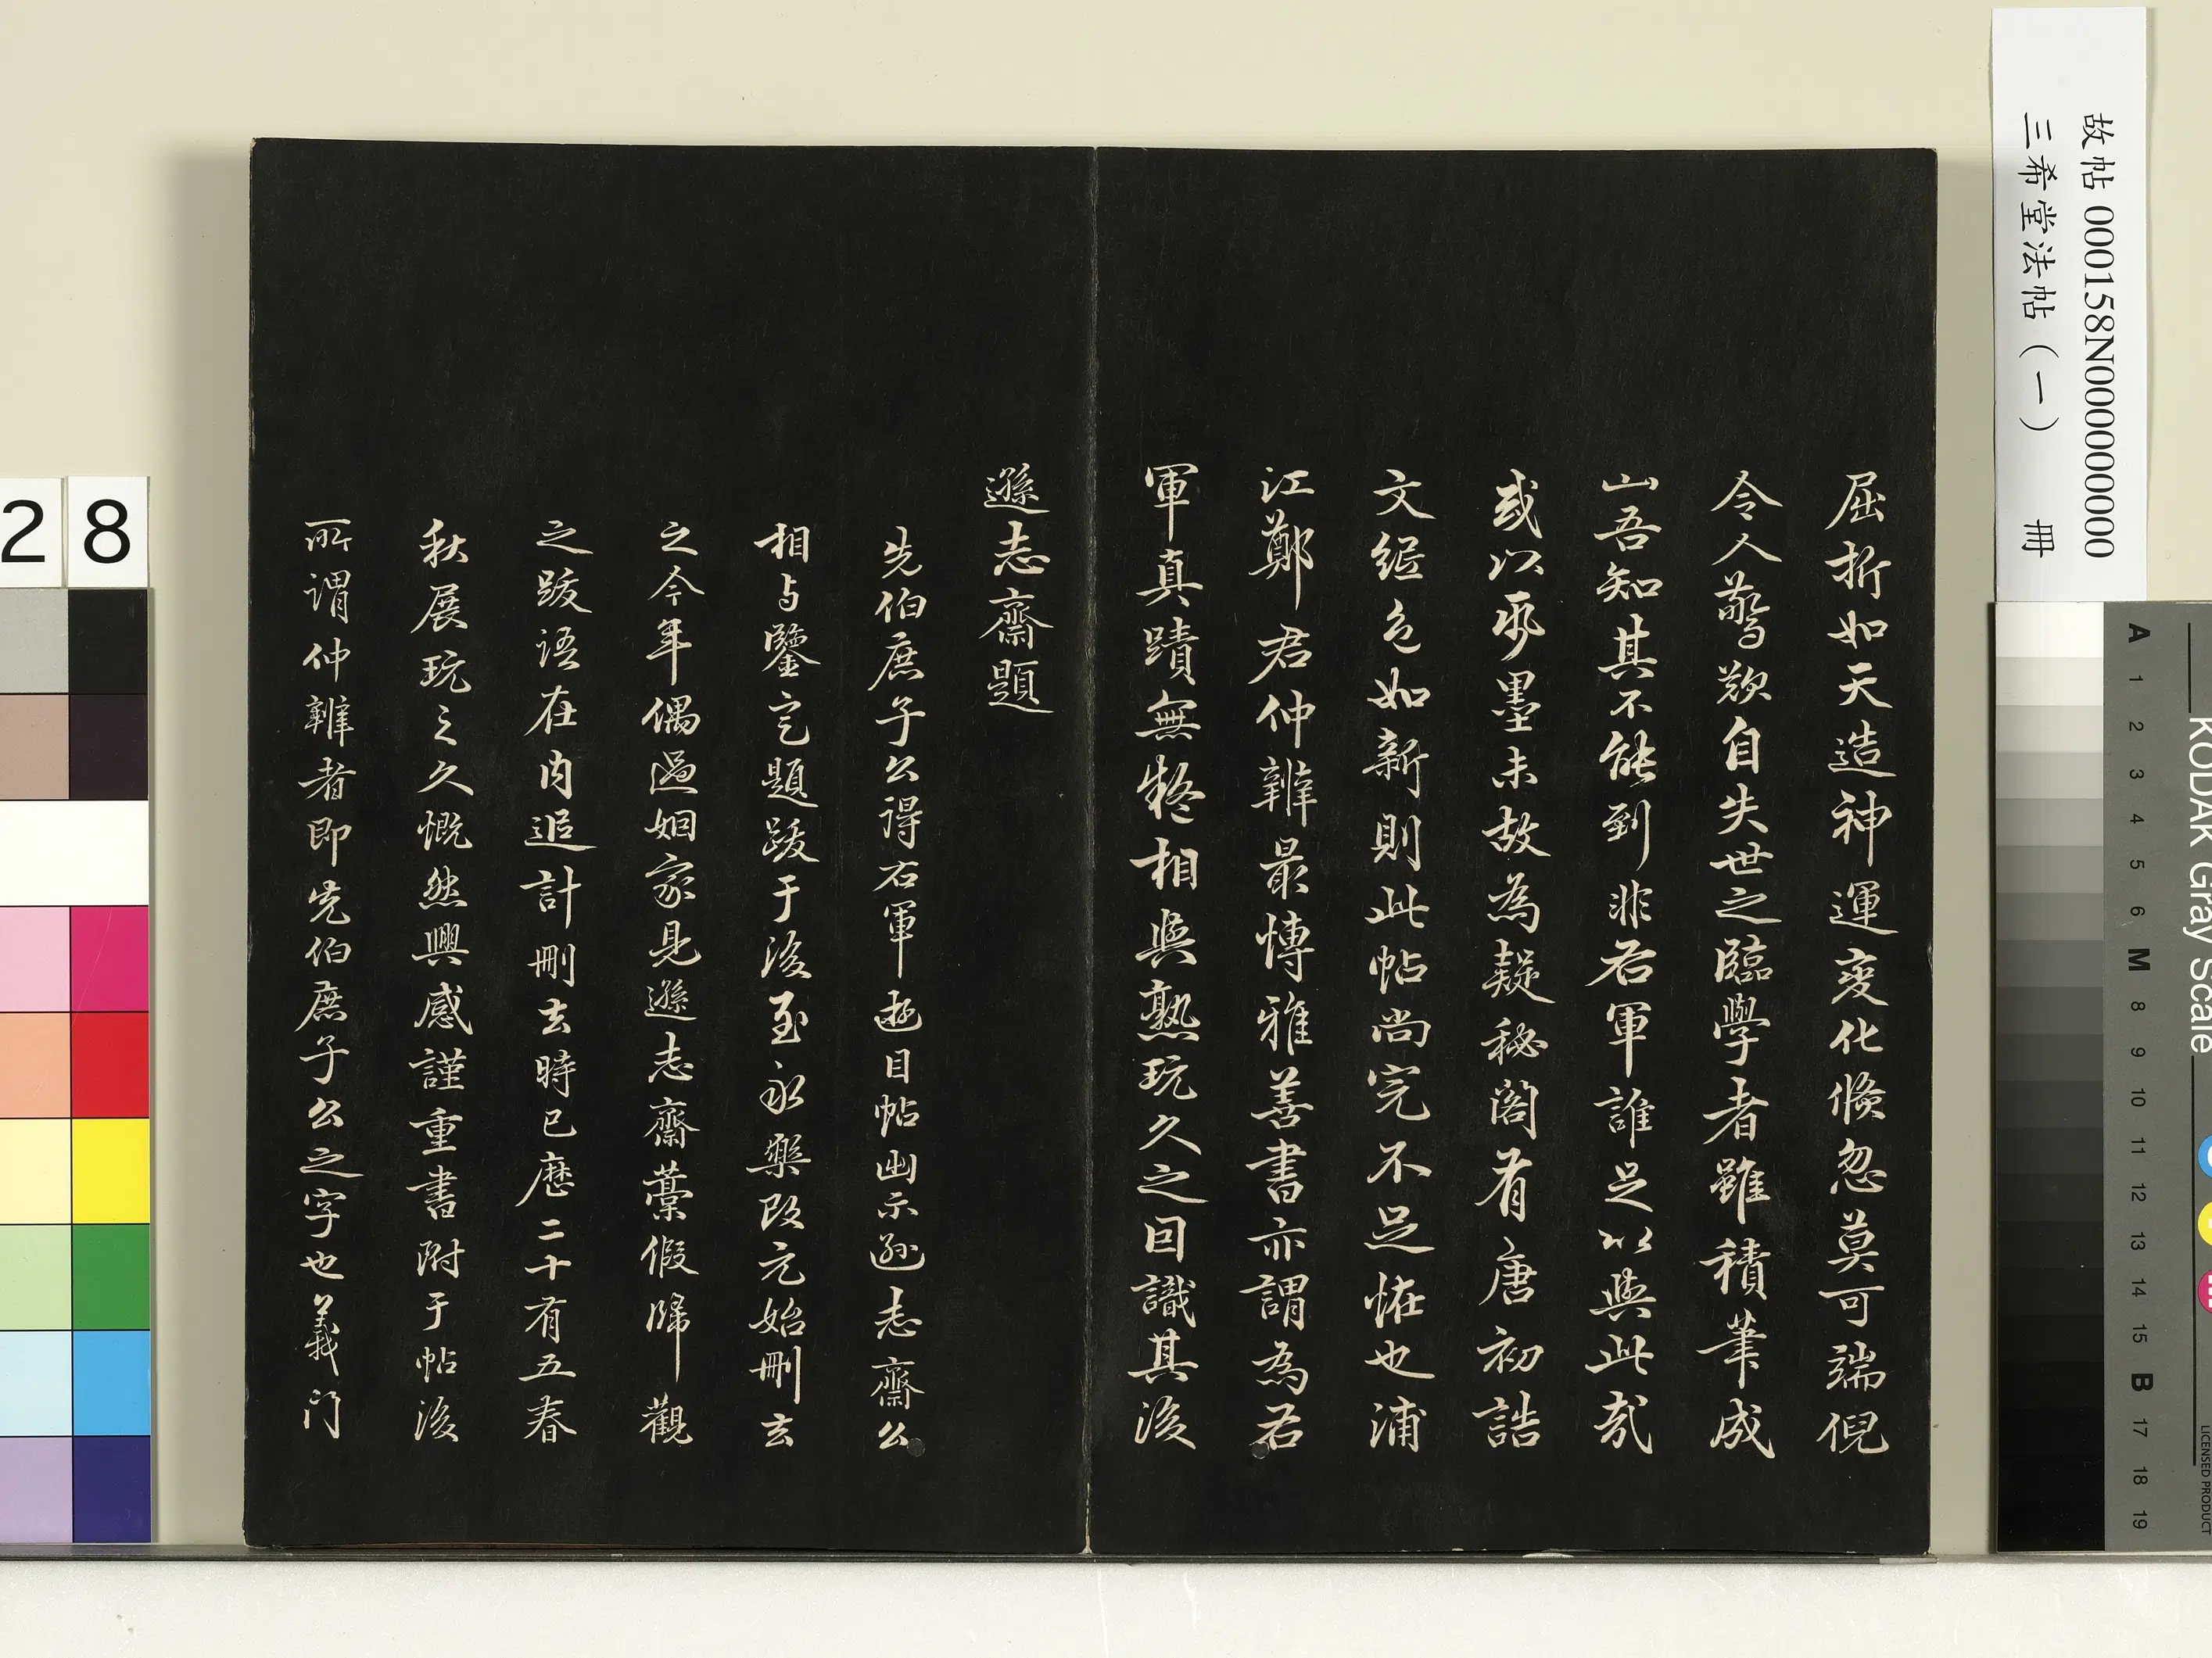 故帖 000158N000000000
三希堂法帖（一） 冊
屈折如天造神運變化倏忽莫可端倪
令人驚歎自失世之臨學者雖積筆成
山吾知其不能到非右軍誰足以與此哉
或以雨墨未故為疑秘閣有唐初誥
文紙色如新則此帖尚完不足恠也浦
江鄭君仲辨最博雅善書亦謂為右
軍真蹟無疑相與熟玩久之因識其後
遜志齋題
先伯庶子公得右軍遊目帖出示遜志齋公
相与鑒定題跋于後至永樂改元始刪去
之今年偶過姻家見遜志齋藁假歸觀
之跋語在內追計刪去時已歷二十有五春
秋展玩之久慨然興感謹重書附于帖後
所謂仲辨者即先伯庶子公之字也義門
28
KODAK Gray Scale
A 1 2 3 4 5 6 M 8 9 10 11 12 13 14 15 B 17 18 19
LICENSED PRODUCT